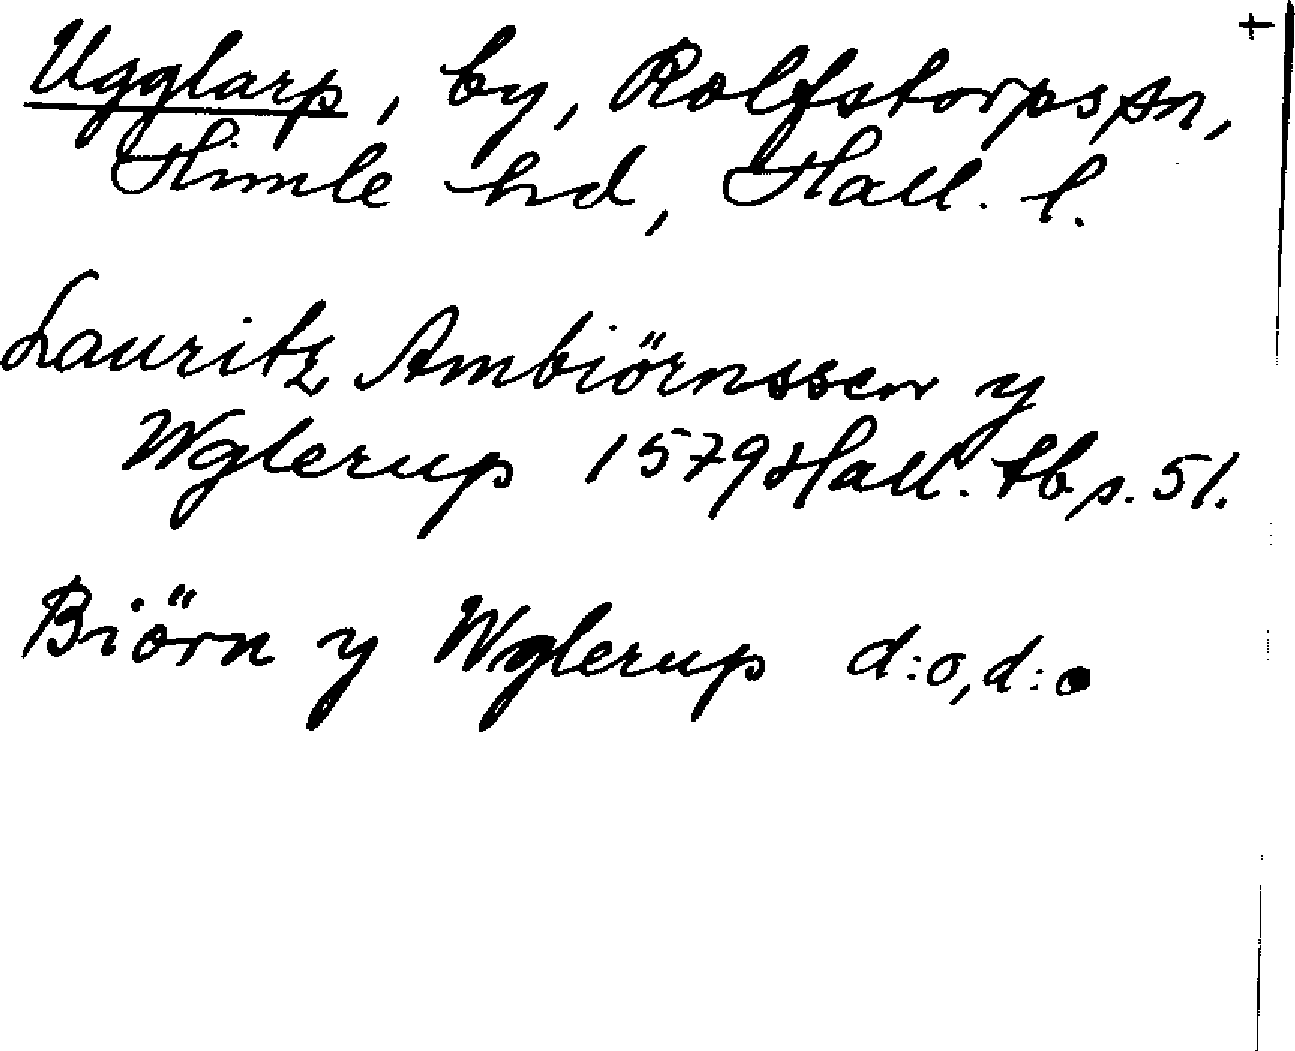 +
Ugglarp, by, Rolfstorps sn,
Himle hd, Hall. l.
Lauritz Ambiörnssen y
Wglerup 1579 Hall. tb. s. 51.
Biörn y Wglerup d:o, d:o